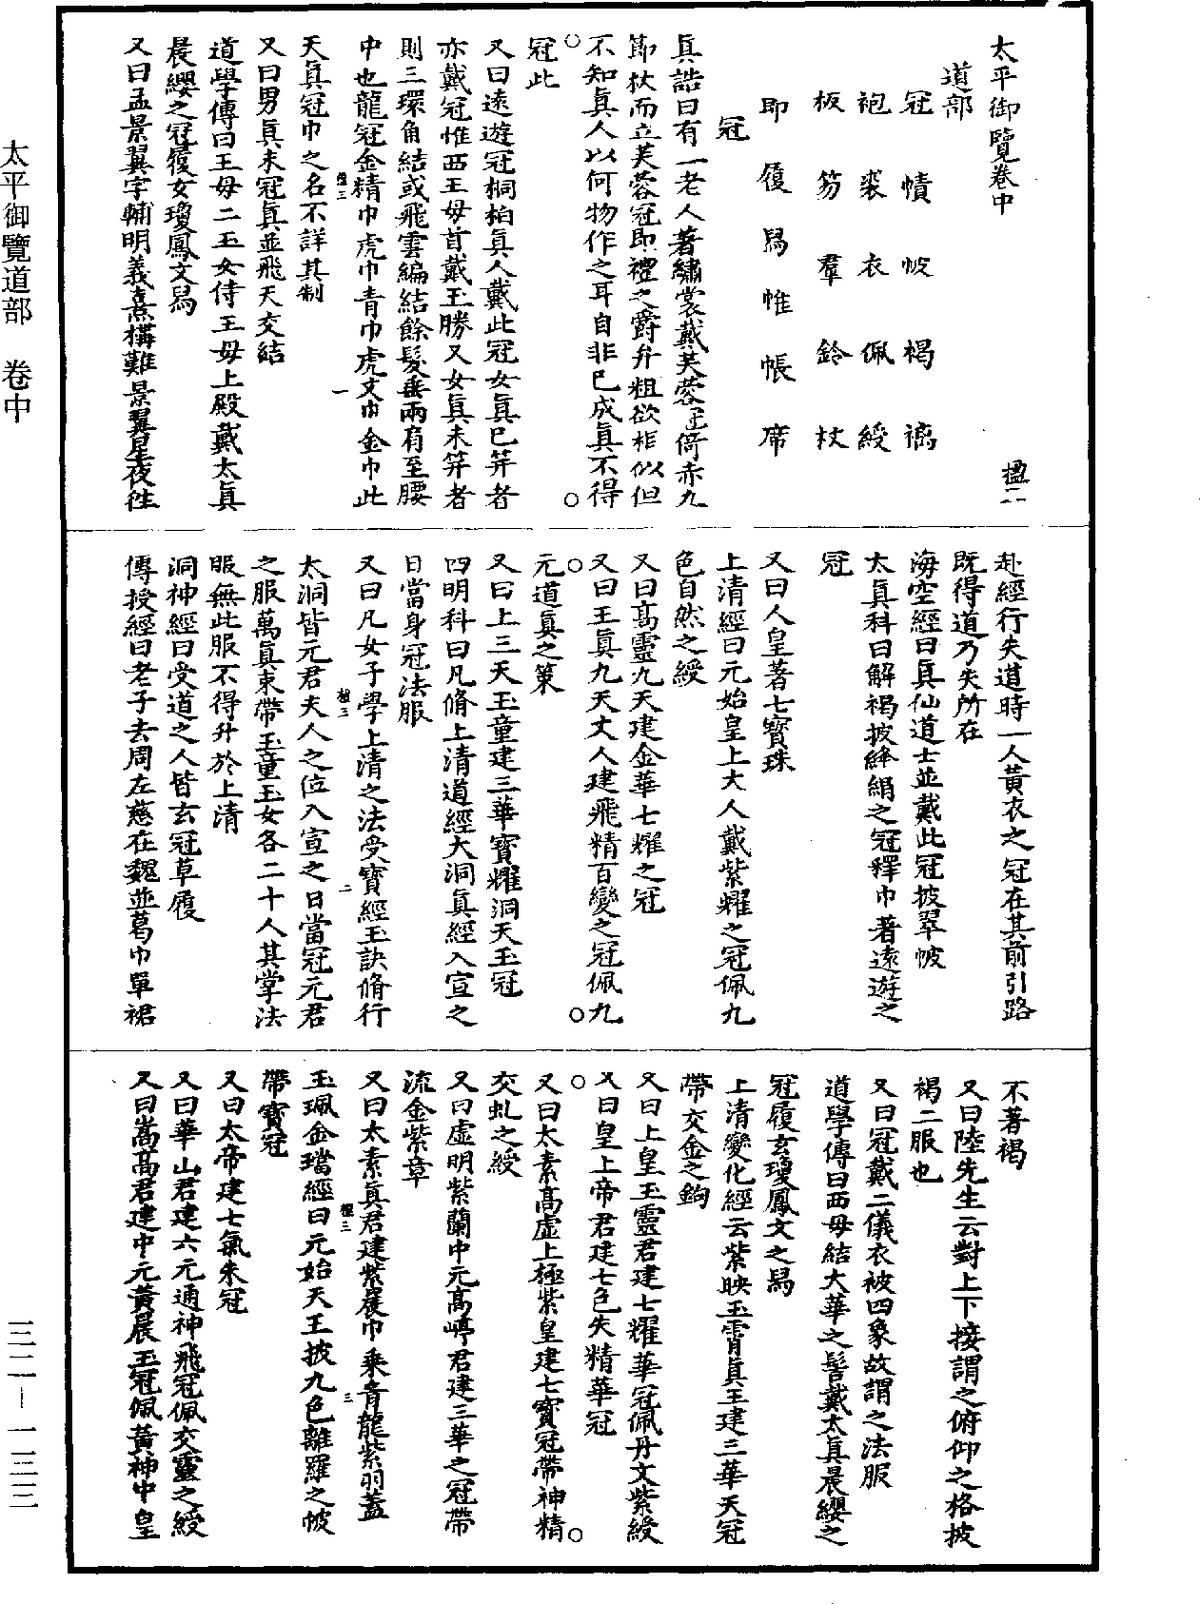 太平御覽卷中　　　　楹二
道部
冠　幘　帔　褐　
袍　裘　衣　佩　綬
板　笏　羣　鈴　杖
即　履　舄　帷　帳　席
冠
真誥曰有一老人著繡裳戴芙蓉冠倚赤九
節杖而立芙蓉冠即禮之爵弁粗欲相似但
不知真人以何物作之耳自非已成真不得
冠此
又曰遠遊冠桐柏真人戴此冠女真已笄者
亦戴冠惟西王母首戴玉勝又女真未笄者
則三環角結或飛雲編結餘髮垂兩肩至腰
中也龍冠金精巾虎巾青巾虎文巾金巾此
楹三　一
天真冠巾之名不詳其制
又曰男真未冠真並飛天交結
道學傳曰王母二玉女侍王母上殿戴太真
晨纓之冠履女瓊鳳文舄
又曰孟景翼字輔明義熹構難景翼星夜徃
赴經行失道時一人黃衣之冠在其前引路
既得道乃失所在
海空經曰真仙道士並戴此冠披翠帔
太真科曰解褐披絳絹之冠釋巾著遠遊之
冠
又曰人皇著七寶珠
上清經曰元始皇上大人戴紫耀之冠佩九
色自然之綬
又曰高靈九天建金華七耀之冠
又曰王真九天丈人建飛精百變之冠佩九
元道真之策
又曰上三天玉童建三華寶耀洞天玉冠
四明科曰凡脩上清道經大洞真經入宣之
日當身冠法服
又曰凡女子學上清之法受寶經玉訣脩行
楹三　二
太洞皆元君夫人之位入宣之日當冠元君
之服萬真束帶玉童玉女各二十人其掌法
服無此服不得升於上清
洞神經曰受道之人皆玄冠草履
傳授經曰老子去周左慈在魏並葛巾單裙
不著褐
又曰陸先生云對上下接謂之俯仰之格披
褐二服也
又曰冠戴二儀衣被四象故謂之法服
道學傳曰西母結大華之髻戴太真晨纓之
冠履玄瓊鳳文之舄
上清變化經云紫映玉霄真王建三華天冠
帶交金之鉤
又曰上皇玉靈君建七耀華冠佩丹文紫綬
又曰皇上帝君建七色失精華冠
又曰太素高虛上極紫皇建七寶冠帶神精
交虬之綬
又曰虛明紫蘭中元高崞君建三華之冠帶
流金紫章
又曰太素真君建紫巾乘青龍紫羽蓋
楹三　三
玉珮金璫經曰元始天王披九色離羅之帔
帶寶冠
又曰太帝建七氣朱冠
又曰華山君建六元通神飛冠佩交靈之綬
又曰嵩高君建中元黃晨玉冠佩黃神中皇
太平御覽道部　卷中
三二－一三三